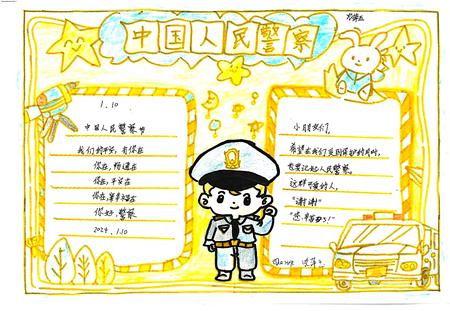 中国人民警察
1.10
中国人民警察节
我们的平安,有你在
你在,畅通在
你在,平安在
你在,幸福在
你好,警察
2024.1.10
小朋友们,
希望在我们受到保护的同时,
也要记起人民警察,
这群可爱的人,
"谢谢"
"您辛苦了!"